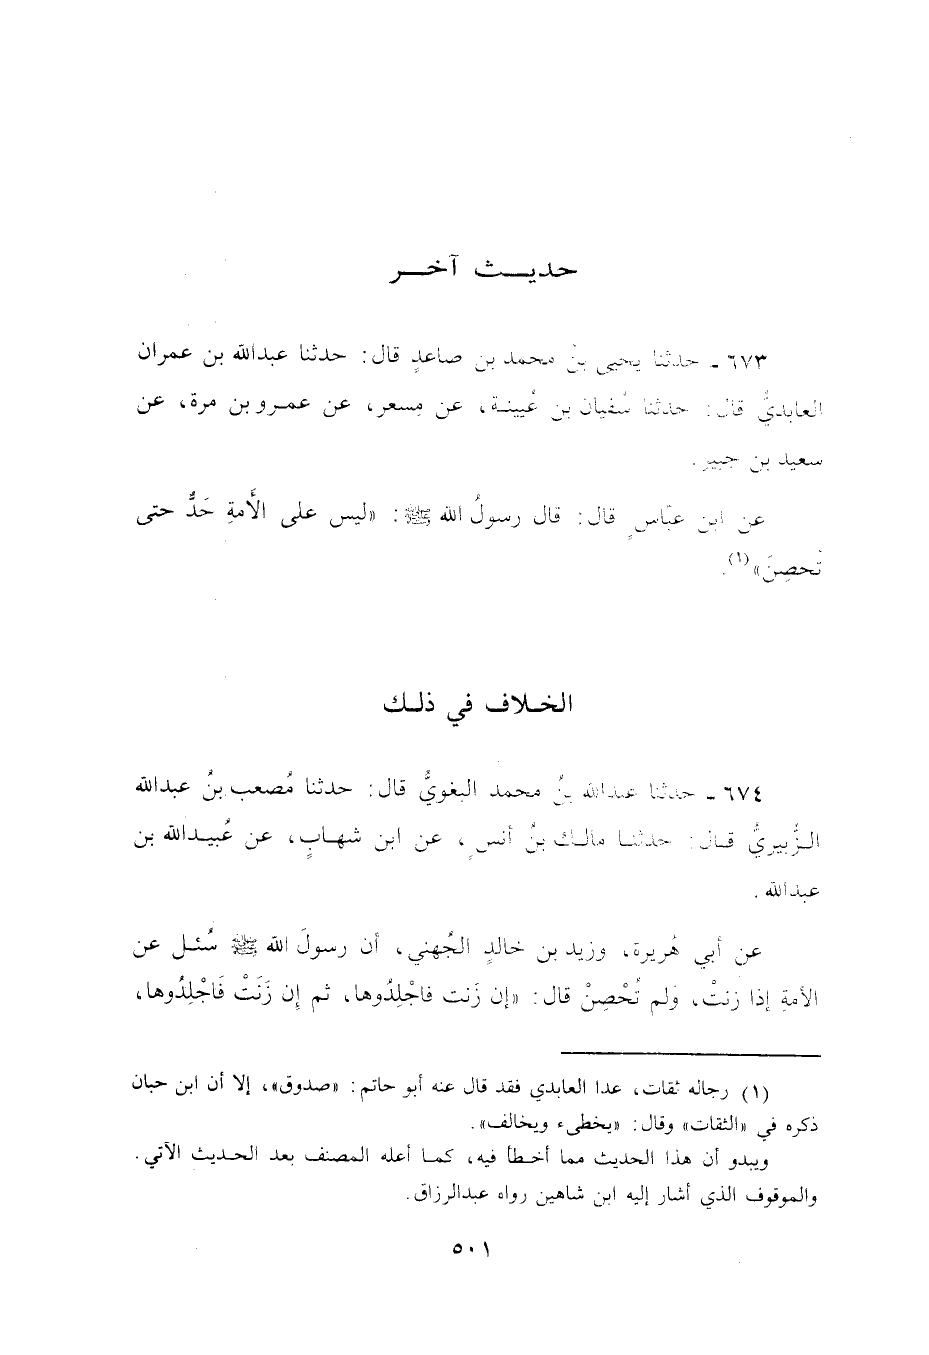 حديث آخر
٦٧٣ - حدثنا يحيى بنُ محمد بن صاعدٍ قال: حدثنا عبدالله بن عمران
العابديُّ قال: حدثنا سُفيان بن عُيينة، عن مِسعر، عن عمرو بن مرة، عن
سعيد بن جبير.
عن ابن عبّاسٍ قال: قال رسولُ الله ﷺ: «ليس على الأَمةِ حَدٌّ حتى
تُحصِنَ»(١).
الخلاف في ذلك
٦٧٤ - حدثنا عبدالله بنُ محمد البغويُّ قال: حدثنا مُصعب بنُ عبدالله
الزُّبيريُّ قال: حدثنا مالك بنُ أنسٍ، عن ابن شهابٍ، عن عُبيدالله بن
عبدالله.
عن أبي هُريرة، وزيد بن خالدٍ الجُهني، أن رسولَ الله ﷺ سُئل عن
الأمةِ إذا زنتْ، ولم تُحْصِنْ قال: «إن زَنت فاجْلِدُوها، ثم إِن زَنَتْ فَاجْلِدُوها،
(١) رجاله ثقات، عدا العابدي فقد قال عنه أبو حاتم: «صدوق»، إلا أن ابن حبان
ذكره في «الثقات» وقال: «يخطىء ويخالف».
ويبدو أن هذا الحديث مما أخطأ فيه، كما أعله المصنف بعد الحديث الآتي.
والموقوف الذي أشار إليه ابن شاهين رواه عبدالرزاق.
٥٠١